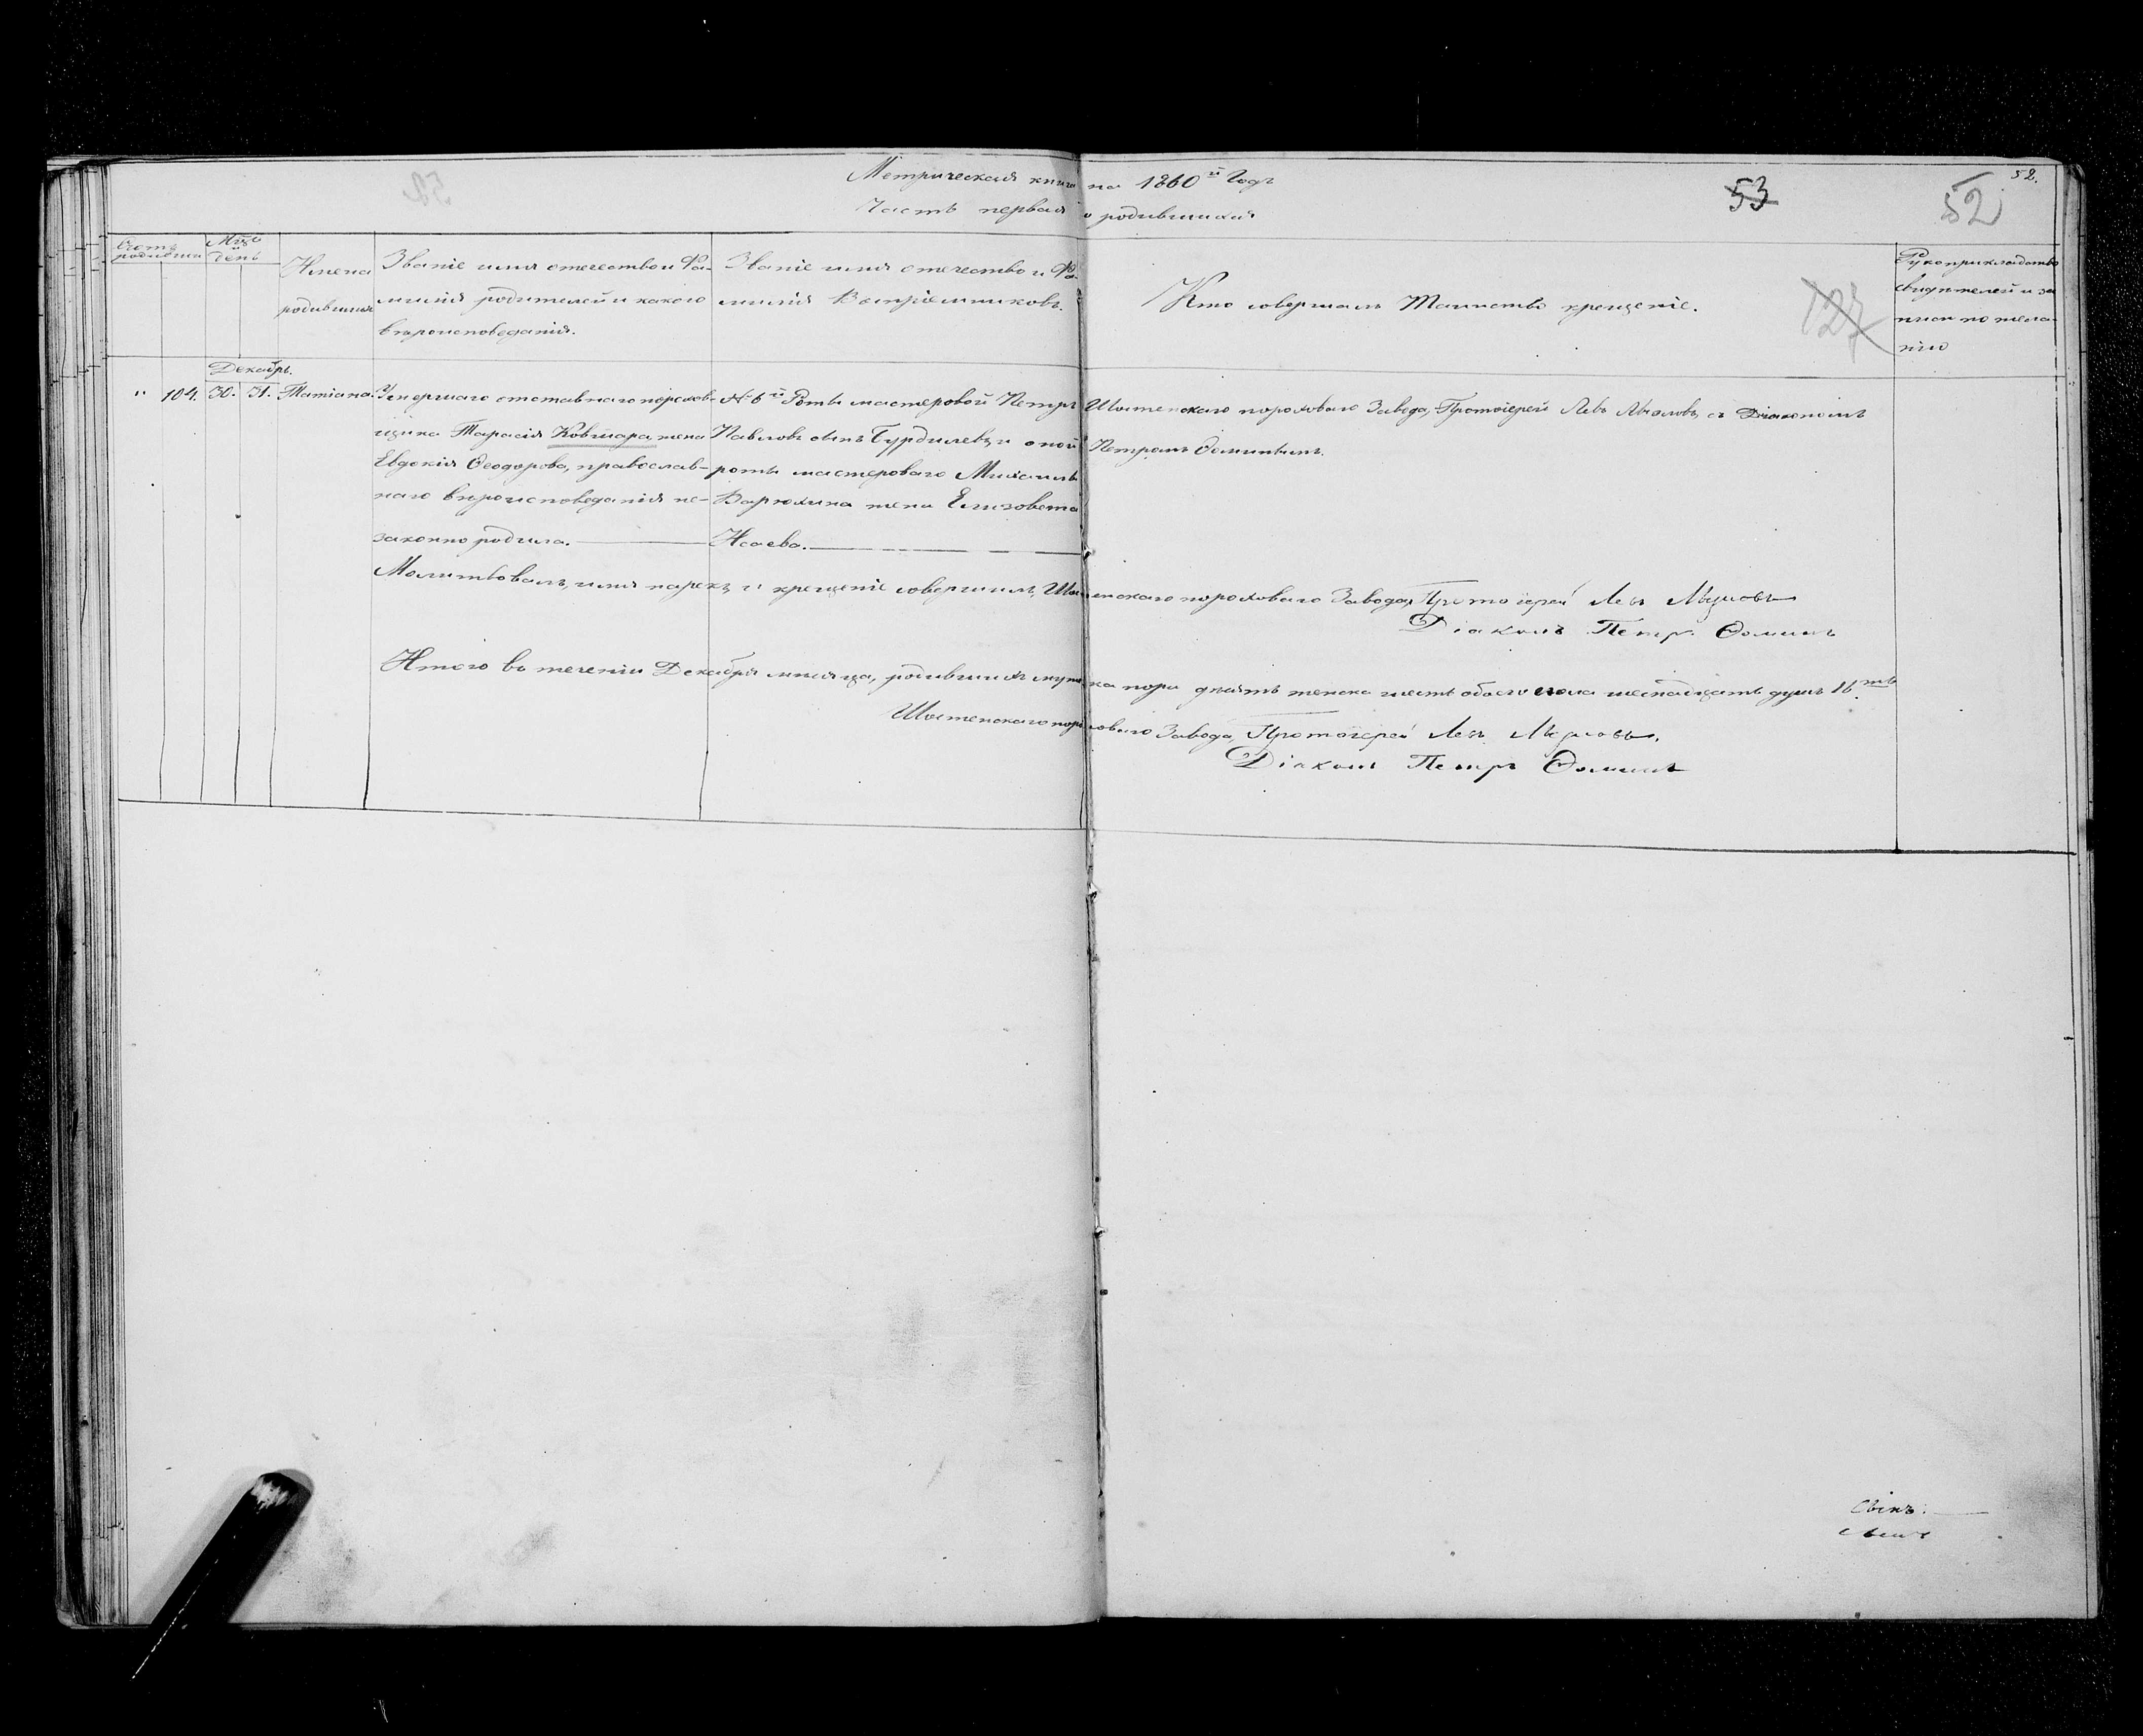 Метрическая книга на 1860й Годъ
Часть первая о родившихся
53
52
52.
127
Счетъ родивши
Мцъ День
Имена родившихся
Званіе имя отечество и Фа-
милія родителей и какого
вѣроисповеданія.
Званіе имя отечество и Фа-
милія Воспріемниковъ.
Кто совершалъ Таинство крещеніе.
Рукоприкладство
свидѣтелей и за
писи по жела-
нію
Декабрь.
" 104. 30. 31. Татіана.
Умершаго отставнаго порохов-
щика Тарасія Ковшара жена
Евдокія Ѳеодорова, православ-
наго вѣроисповеданія не-
законно родила.
№ 6й Роты мастеровой Петръ
Павловъ сынъ Бурдилевъ и оной
роты мастероваго Михаила
Варюхина жена Елизовета
Исаева.
Шостенскаго пороховаго Завода, Протоіерей Левъ с Діякономъ
Петромъ Ѳоминымъ.
Молитвовалъ, имя нарекъ и крещеніе совершилъ, Шостенскаго пороховаго Завода, Протоіерей Левъ
Діаконъ Петръ Ѳоминъ
Итого въ теченіи Декабря мѣсяца, родившихся мужеска пола десять женска шесть обоего пола шеснадцать душъ 16ть.
Шостенскаго пороховаго Завода, Протоіерей Левъ
Діаконъ Петръ Ѳоминъ